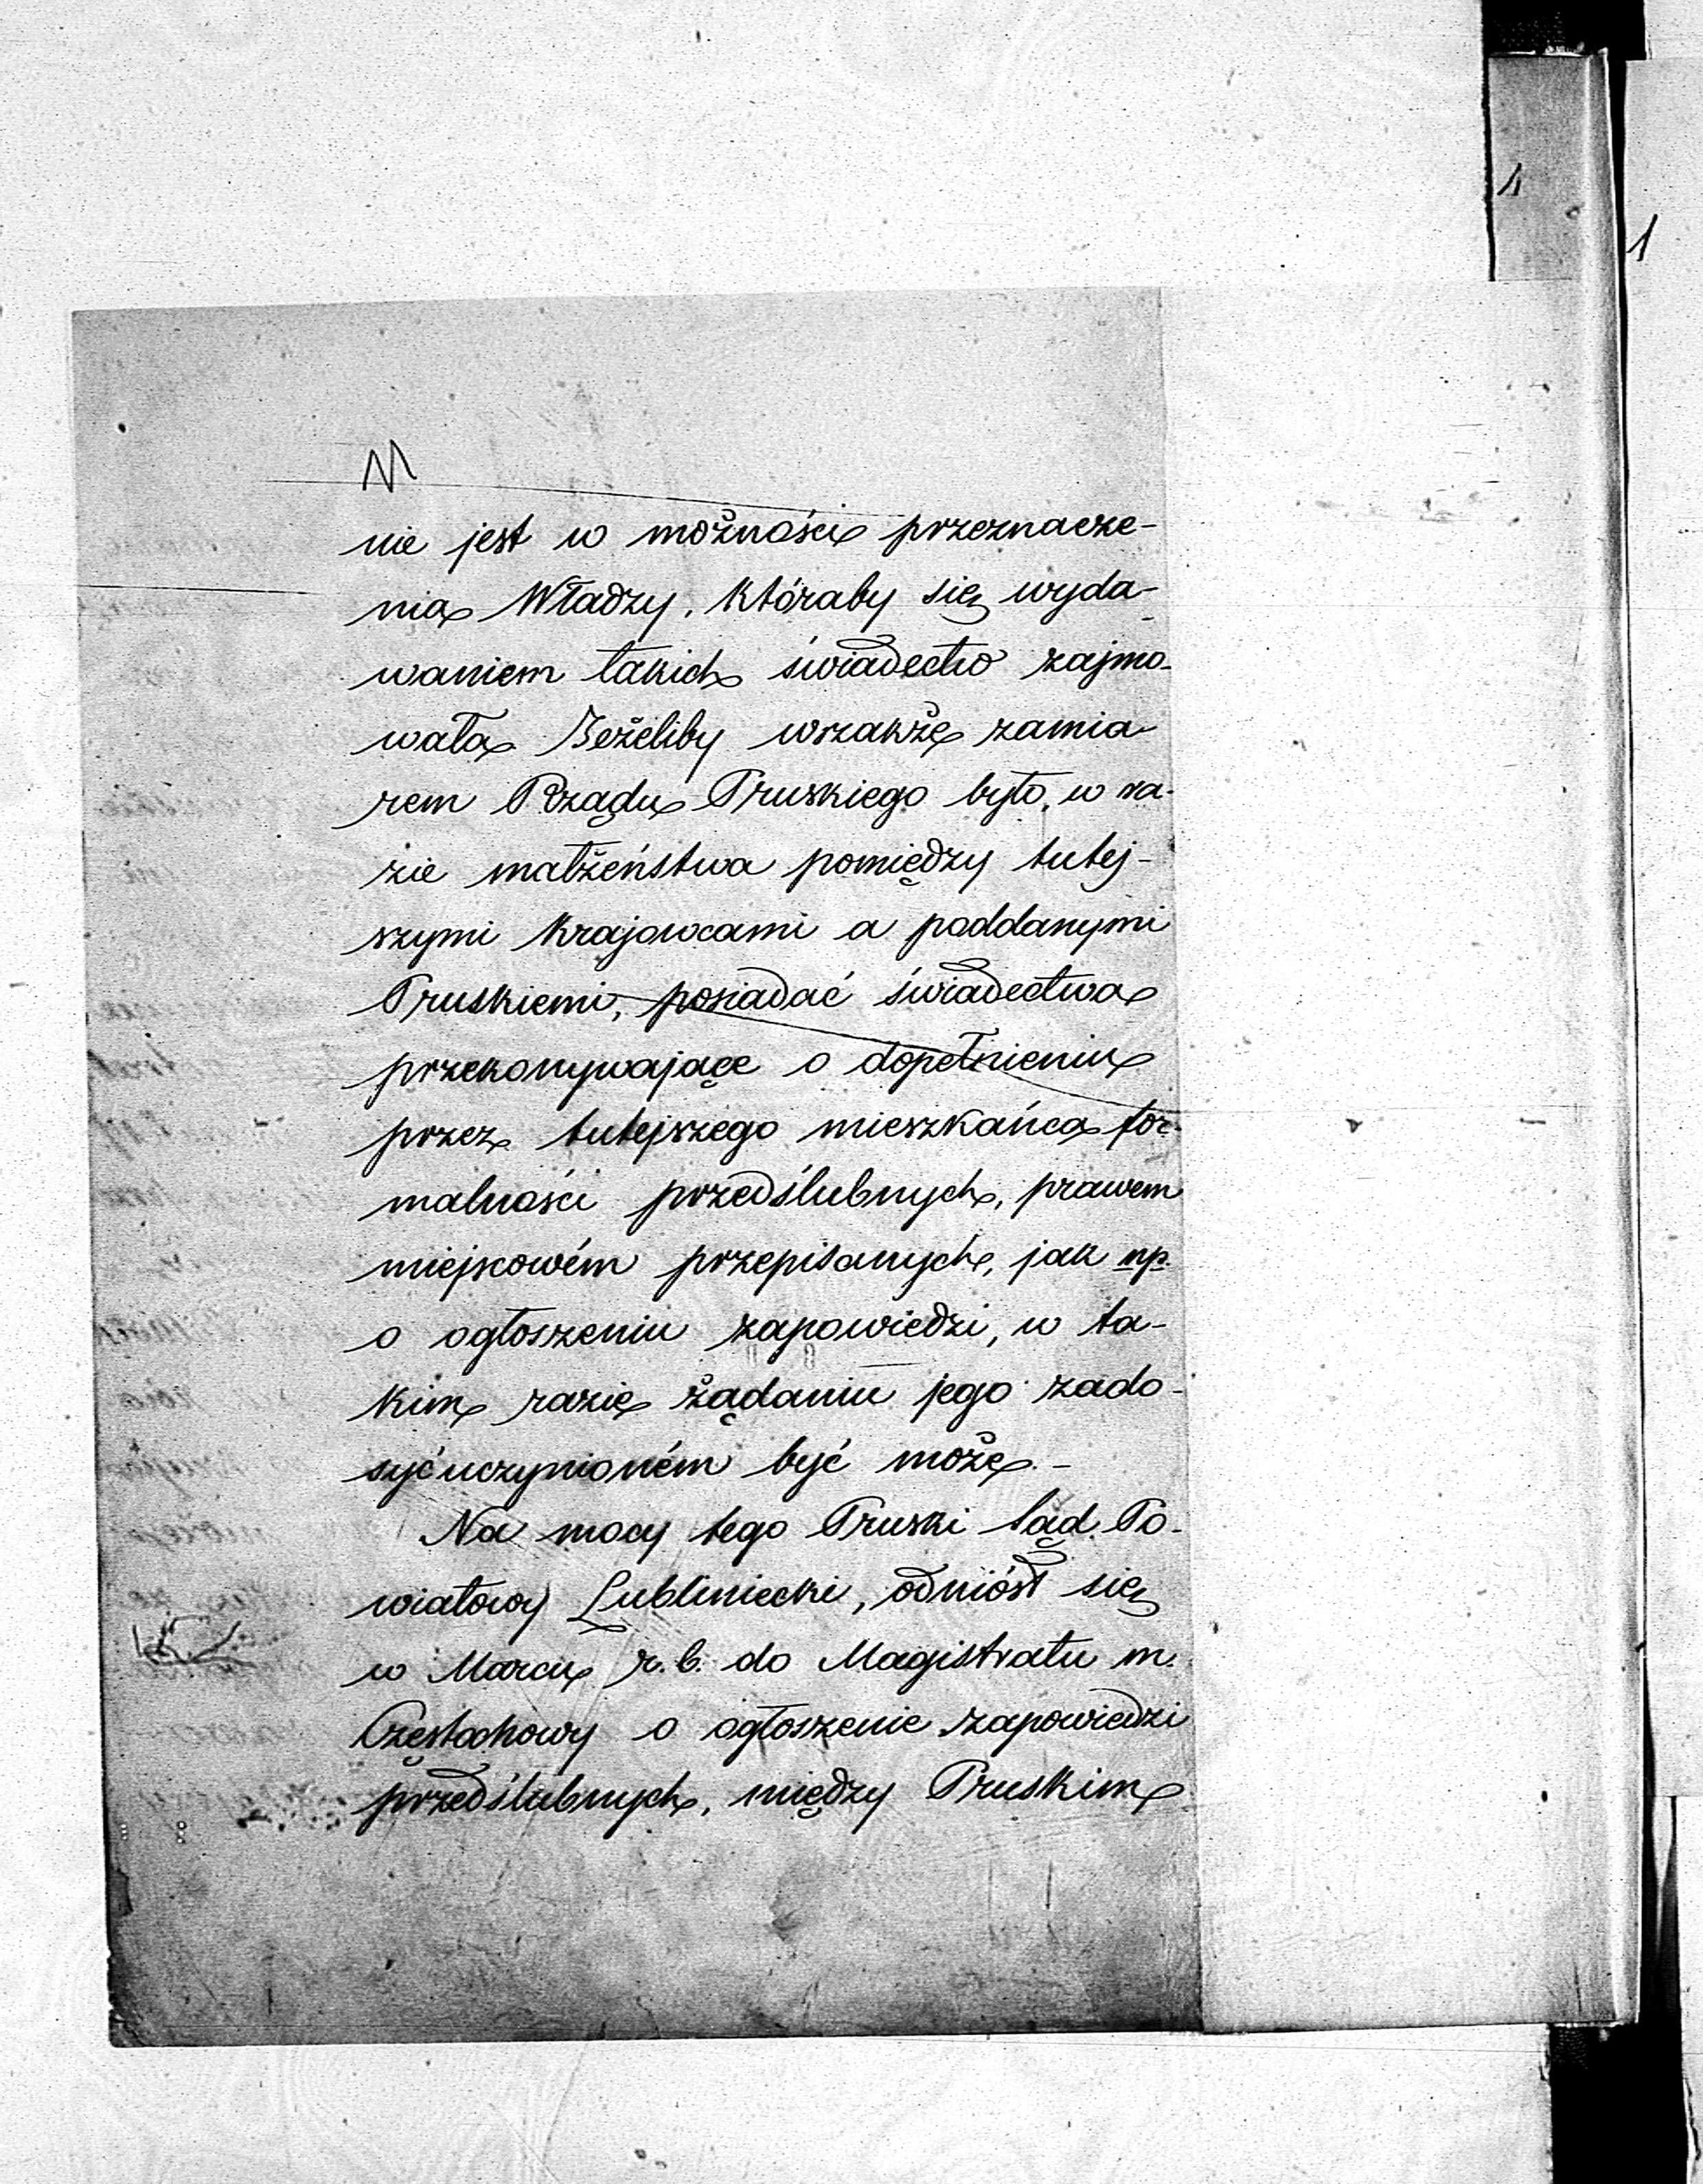 nie jest w możności przeznacze-
nia Władzy, któraby się wyda-
waniem takich świadectw zajmo-
wała. Jeżeliby wszakże zamia-
rem Rządu Pruskiego było, w ra-
zie małżeństwa pomiędzy tutej-
szymi krajowcami a poddanymi
Pruskiemi, posiadać świadectwa
przekonywające o dopełnieniu
przez tutejszego mieszkańca for-
malności przedślubnych, prawem
miejscowém przepisanych, jak np.
o ogłoszeniu zapowiedzi, w ta-
kim razie żądaniu jego zado-
syćuczynioném być może. -
Na mocy tego Pruski Sąd Po-
wiatowy Lubliniecki, odniósł się
w Marcu r. b. do Magistratu m.
Częstochowy o ogłoszenie zapowiedzi
przedślubnych, między Pruskim
1
1